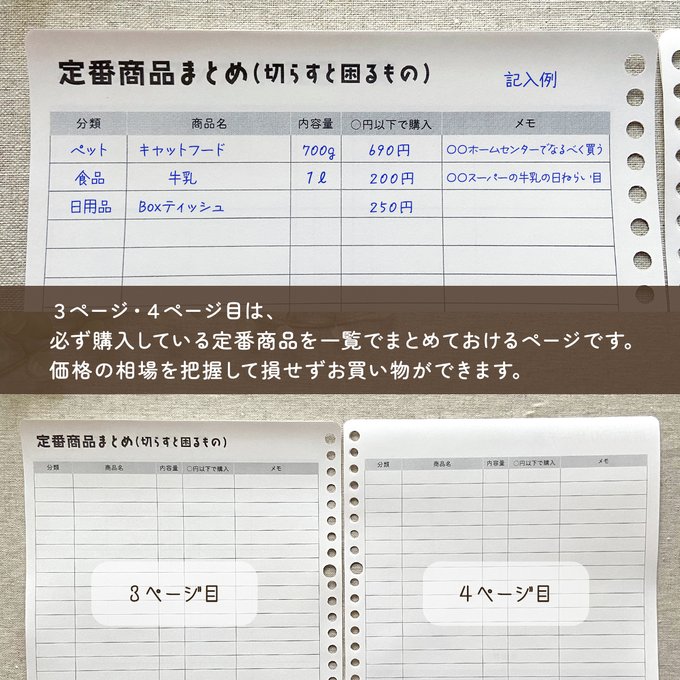 定番商品まとめ(切らすと困るもの)
記入例
分類 商品名 内容量 ○円以下で購入 メモ
ペット キャットフード 700g 690円 ○○ホームセンターでなるべく買う
食品 牛乳 1ℓ 200円 ○○スーパーの牛乳の日ねらい目
日用品 Boxティッシュ 250円
3ページ・4ページ目は、
必ず購入している定番商品を一覧でまとめておけるページです。
価格の相場を把握して損せずお買い物ができます。
定番商品まとめ(切らすと困るもの)
分類 商品名 内容量 ○円以下で購入 メモ
3ページ目
分類 商品名 内容量 ○円以下で購入 メモ
4ページ目